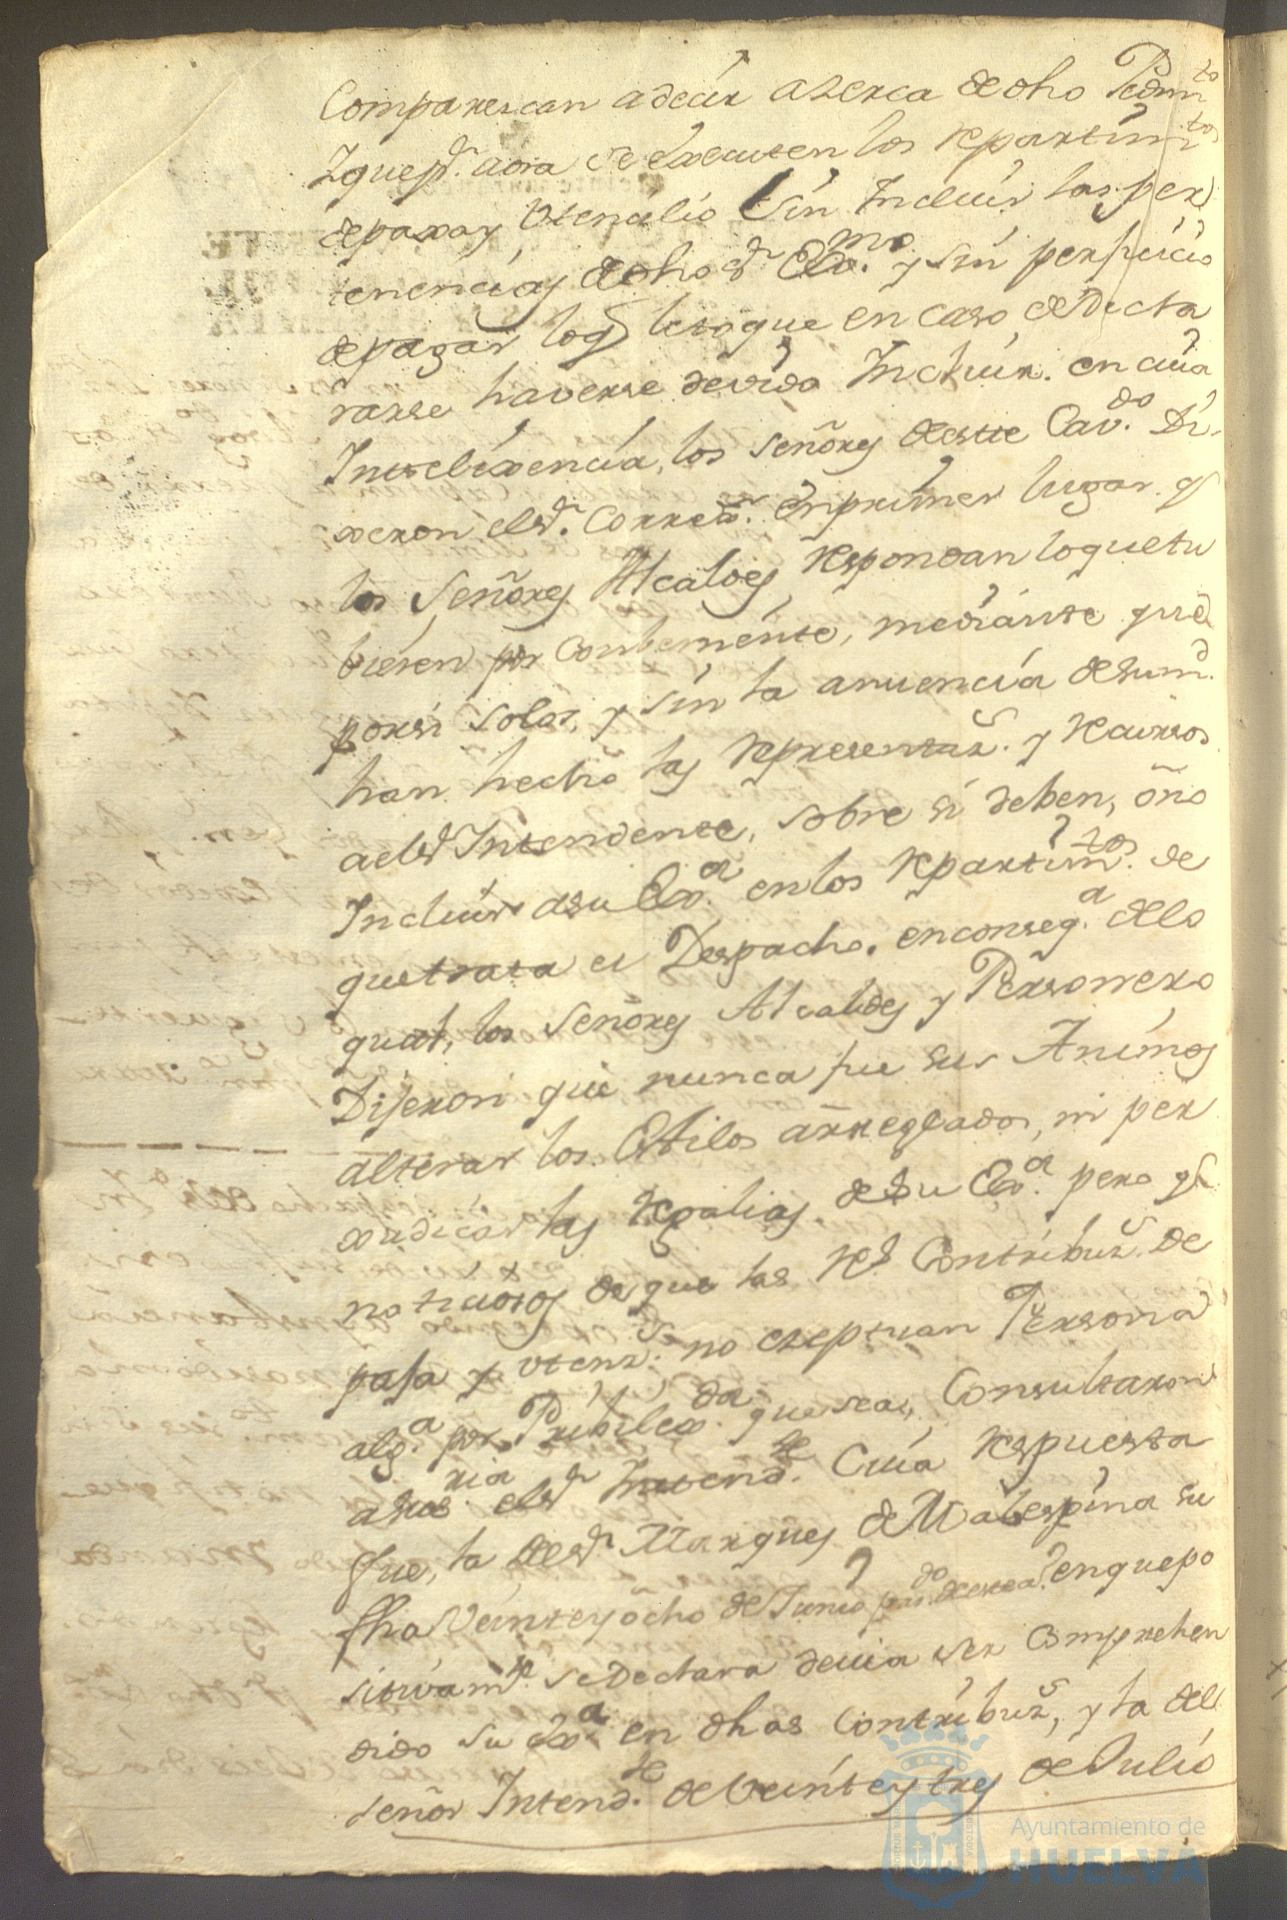 Comparescan a decir aserca de dho Pedimto
Y que pr. aora se executen los repartimtos
de paxa y Utencilio sin Incluir las per
tenencias de dho Sr. Exmo. y sin perjuicio
de pagar lo q leto que en caso de Decla
rarse haverse devido Incluir. en cuia
Intelixencia, los señores de este Cavdo. Di-
xeron el Sr. Correxr. en primer lugar q
los Señores Alcaldes respondan lo que tu
bieren por Conbeniente, mediante que
por si solos, y sin la anuencia de su md.
han hecho las representazs. y recursos
a el Sr Intendente, sobre si deben, ō no
Incluir a su Exa. en los repartimtos. de
que trata el Despacho. en conseqa. de lo
qual, los Señores Alcaldes y Personero
Dijeron que nunca fue sus Animos
alterar los Estilos arreglados, ni per
xudicar las regalias de su Exa. pero q
noticiosos de que las rs. Contribuzs. de
paja y utenzs. no eseptuan Persona
alga. por Pribilexda. que sea, Consultaron
a el Sr Intendte. Cuia respuesta
fue, la del Sr Marques de Malespina su
fha Veinte y ocho de Junio pasdo. de este a. en que po
sitivamte. se Declara devia ser Comprehen
dido su Exa en dhas Contribuzs, y la del
señor Intendte. de Veinte y tres de Julio
Ayuntamiento de
HUELVA